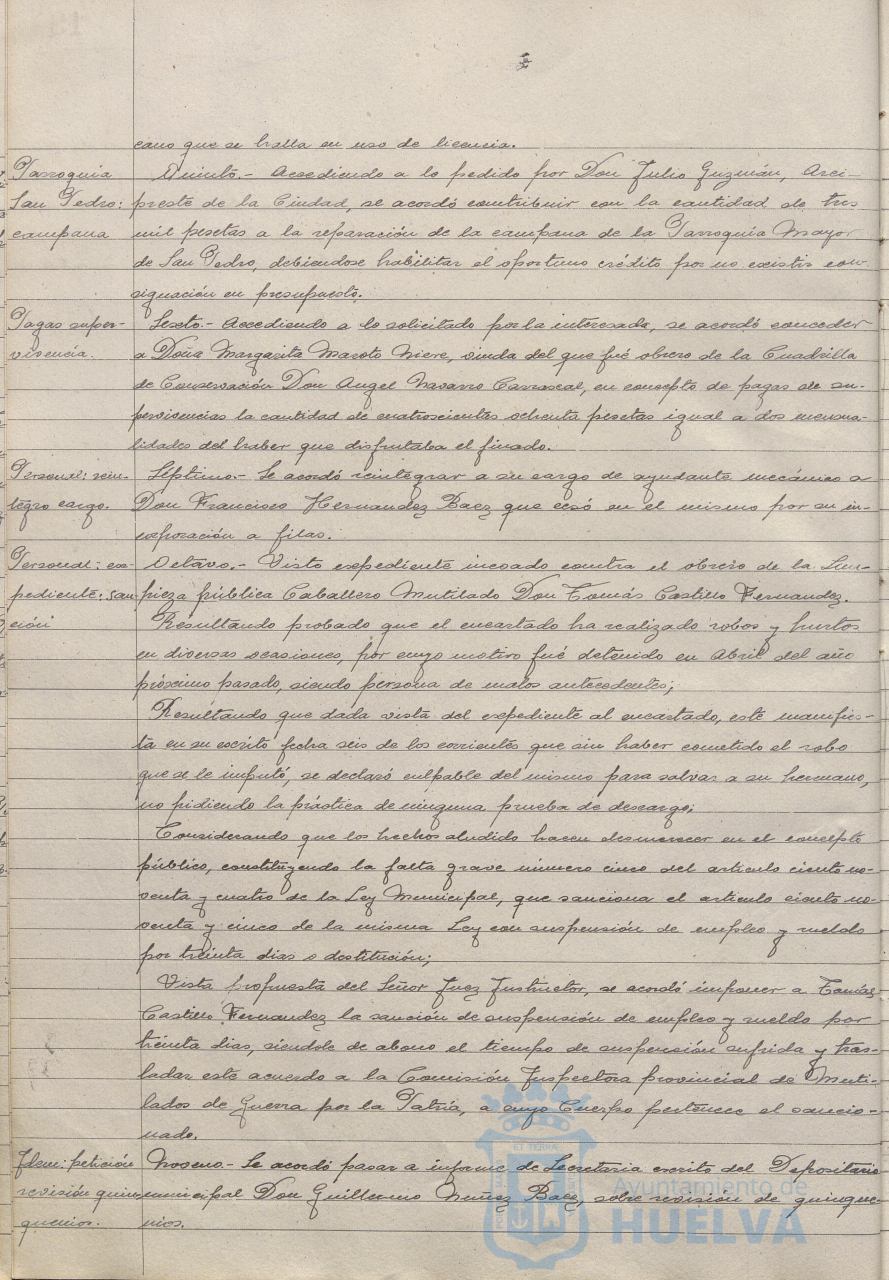 cano que se halla en uso de licencia.
Parroquia
San Pedro:
campana
Quinto.- Accediendo a lo pedido por Don Julio Guzmán, Arci-
preste de la Ciudad, se acordó contribuir con la cantidad de tres
mil pesetas a la reparación de la campana de la Parroquia Mayor
de San Pedro, debiendose habilitar el oportuno crédito por no existir con-
signación en presupuesto.
Pagas super-
vivencia.
Sexto.- Accediendo a lo solicitado por la interesada, se acordó conceder
a Doña Margarita Maroto Niere, viuda del que fué obrero de la Cuadrilla
de Conservación Don Angel Navarro Carrascal, en concepto de pagas de su-
pervivencias la cantidad de cuatrocientas ochenta pesetas igual a dos mensua-
lidades del haber que disfrutaba el finado.
Personal: rein-
tegro cargo.
Séptimo.- Se acordó reintegrar a su cargo de ayudante mecánico a
Don Francisco Hernandez Baez que cesó en el mismo por su in-
corporación a filas.
Personal: ex-
pediente: san
ción
Octavo.- Visto expediente incoado contra el obrero de la Lim-
pieza pública Caballero Mutilado Don Tomás Castillo Fernandez.
Resultando probado que el encartado ha realizado robos y hurtos
en diversas ocasiones, por cuyo motivo fué detenido en Abril del año
próximo pasado, siendo persona de malos antecedentes;
Resultando que dada vista del expediente al encartado, este manifies-
ta en su escrito fecha seis de los corrientes que sin haber cometido el robo
que se le imputó, se declaró culpable del mismo para salvar a su hermano,
no pidiendo la práctica de ninguna prueba de descargo;
Considerando que los hechos aludido hacen desmerecer en el concepto
público, constituyendo la falta grave número cinco del articulo ciento no-
venta y cuatro de la Ley Municipal, que sanciona el articulo ciento no-
venta y cinco de la misma Ley con suspensión de empleo y sueldo
por treinta dias o destitución;
Vista propuesta del Señor Juez Instructor, se acordó imponer a Tomás
Castillo Fernandez la sanción de suspensión de empleo y sueldo por
treinta dias, siendole de abono el tiempo de suspensión sufrida y tras-
ladar este acuerdo a la Comisión Inspectora provincial de Muti-
lados de Guerra por la Patria, a cuyo Cuerpo pertenece el sancio-
nado.
Idem: petición
revisión quin-
quenios.
Noveno.- Se acordó pasar a informe de Secretaria escrito del Depositario
municipal Don Guillermo Nuñez Baez, sobre revisión de quinque-
nios.
Ayuntamiento de
HUELVA